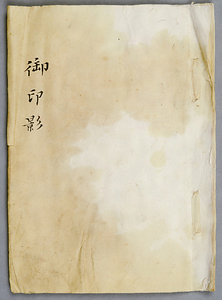 御印影